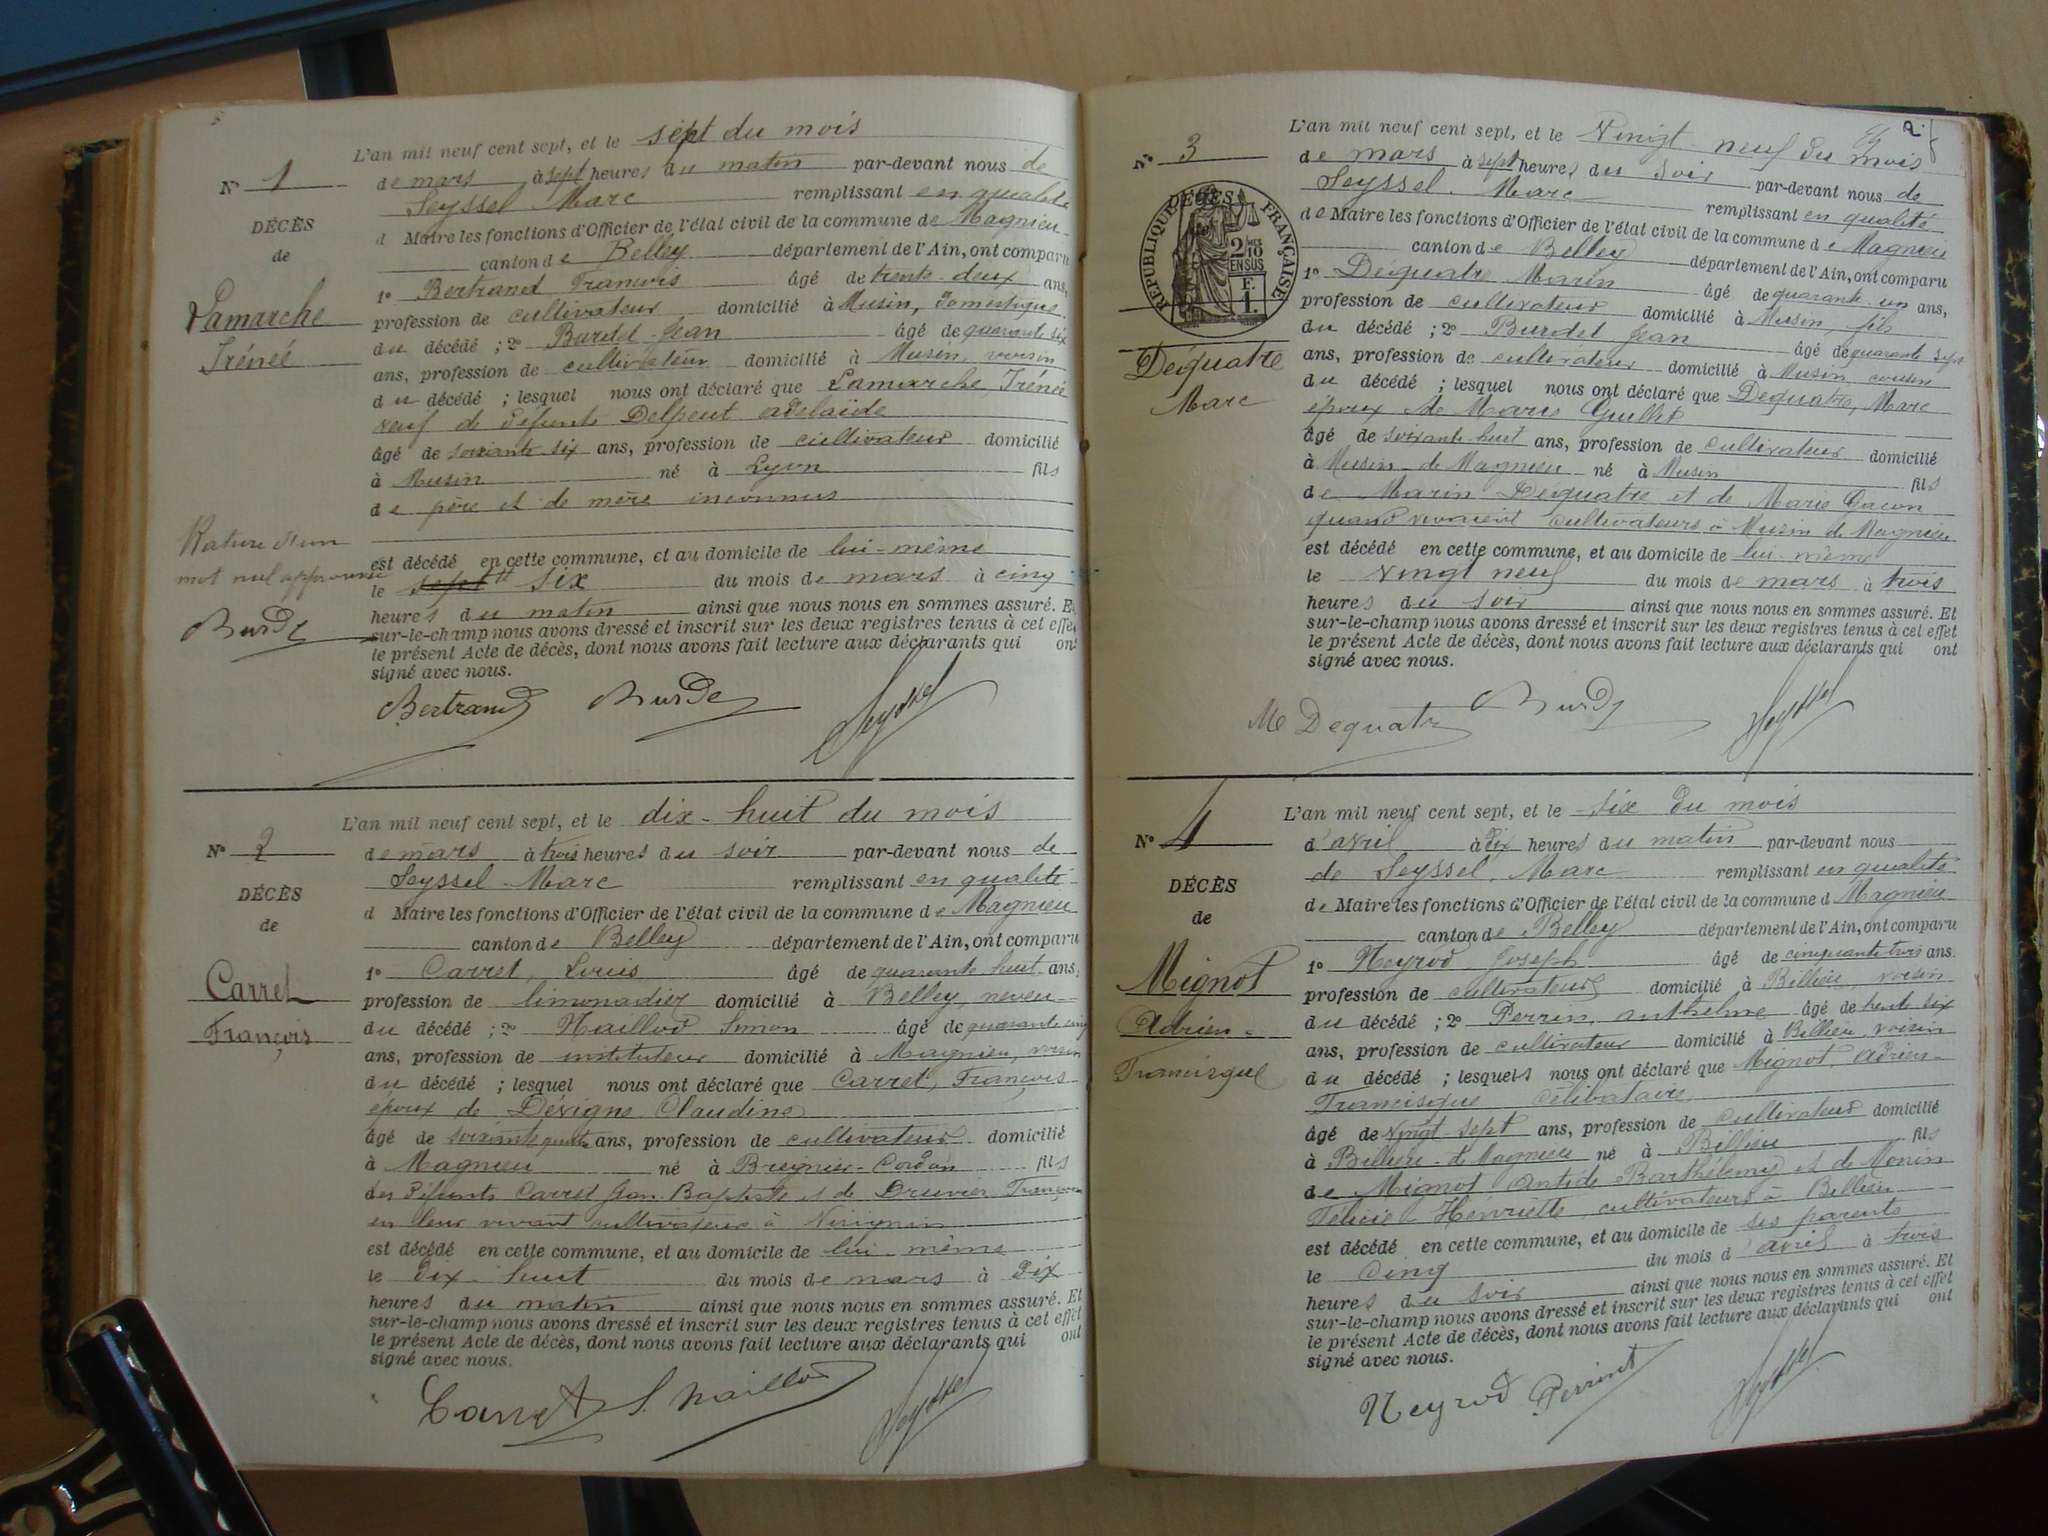 L'an mil neuf cent sept, et le sept du mois
N° 1
de mars à sept heures du matin par-devant nous de
Seyssel Marc remplissant en qualité
DÉCÈS
d Maire les fonctions d'Officier de l'état civil de la commune de Magnieu
de
canton de Belley département de l'Ain, ont comparu
1° Bertrand François âgé de trente-deux ans,
Lamarche
profession de cultivateur domicilié à Musin, domestique
du décédé ; 2° Burdet Jean âgé de quarante six
Irénée
ans, profession de cultivateur domicilié à Musin, voisin
du décédé ; lesquel nous ont déclaré que Lamarche, Irénée
veuf de défunte Delpeut adelaïde
âgé de soixante-six ans, profession de cultivateur domicilié
à Musin né à Lyon fils
de père et de mère inconnus
Rature d'un
mot nul approuvée
est décédé en cette commune, et au domicile de lui-même
le six du mois de mars à cinq
heures du matin ainsi que nous nous en sommes assuré. Et
Burdet
sur-le-champ nous avons dressé et inscrit sur les deux registres tenus à cet effet
le présent Acte de décès, dont nous avons fait lecture aux déclarants qui ont
signé avec nous.
Bertrand Burdet Seyssel
L'an mil neuf cent sept, et le dix-huit du mois
N° 2
de mars à trois heures du soir par-devant nous de
Seyssel Marc remplissant en qualité
DÉCÈS
d Maire les fonctions d'Officier de l'état civil de la commune de Magnieu
de
canton de Belley département de l'Ain, ont comparu
1° Carret, Louis âgé de quarante huit ans,
Carret
profession de limonadier domicilié à Belley, neveu
François
du décédé ; 2° Naillod Simon âgé de quarante cinq
ans, profession de instituteur domicilié à Magnieu, voisin
du décédé ; lesquel nous ont déclaré que Carret, François
époux de Dévigne Claudine
âgé de ans, profession de cultivateur domicilié
à Magnieu né à Bregnier-Cordon fils
des défunts Carret Jean Baptiste et de Druvier
en leur vivant cultivateurs à
est décédé en cette commune, et au domicile de lui-même
le dix-huit du mois de mars à dix
heures du matin ainsi que nous nous en sommes assuré. Et
sur-le-champ nous avons dressé et inscrit sur les deux registres tenus à cet effet
le présent Acte de décès, dont nous avons fait lecture aux déclarants qui ont
signé avec nous.
Carret S. Naillod Seyssel
2
L'an mil neuf cent sept, et le Vingt neuf du mois
N° 3
de mars à sept heures du soir par-devant nous de
Seyssel. Marc remplissant en qualité
DÉCÈS
RÉPUBLIQUE FRANÇAISE
2/10 EN SUS
F. 1.
de Maire les fonctions d'Officier de l'état civil de la commune de Magnieu
canton de Belley département de l'Ain, ont comparu
1° Dequatre Marin âgé de quarante un ans,
profession de cultivateur domicilié à Musin, fils
du décédé ; 2° Burdet Jean âgé de quarante sept
Dequatre
Marc
ans, profession de cultivateur domicilié à Musin, cousin
du décédé ; lesquel nous ont déclaré que Dequatre, Marc
époux de Marie Guillet
âgé de soixante-huit ans, profession de cultivateur domicilié
à Musin de Magnieu né à Musin fils
de Marin Dequatre et de Marie Dacon
quand vivaient cultivateurs à Musin de Magnieu
est décédé en cette commune, et au domicile de lui-même
le vingt neuf du mois de mars à trois
heures du soir ainsi que nous nous en sommes assuré. Et
sur-le-champ nous avons dressé et inscrit sur les deux registres tenus à cet effet
le présent Acte de décès, dont nous avons fait lecture aux déclarants qui ont
signé avec nous.
M Dequatre Burdet Seyssel
L'an mil neuf cent sept, et le six du mois
N° 4
d'avril à dix heures du matin par-devant nous
de Seyssel. Marc remplissant en qualité
DÉCÈS
de Maire les fonctions d'Officier de l'état civil de la commune d Magnieu
de
canton de Belley département de l'Ain, ont comparu
1° Neyrod Joseph âgé de cinquante trois ans.
Mignot
profession de cultivateur domicilié à Billieu, voisin
Adrien-
du décédé ; 2° Perrin, anthelme âgé de trente six
ans, profession de cultivateur domicilié à Billieu, voisin
Francisque
du décédé ; lesquels nous ont déclaré que Mignot, Adrien-
Francisque célibataire
âgé de vingt-sept ans, profession de cultivateur domicilié
à Billieu de Magnieu né à Billieu fils
de Mignot Antide Barthélemy et de Monin
Félicie Henriette, cultivateurs à Billieu
est décédé en cette commune, et au domicile de ses parents
le cinq du mois d'avril à trois
heures du soir ainsi que nous nous en sommes assuré. Et
sur-le-champ nous avons dressé et inscrit sur les deux registres tenus à cet effet
le présent Acte de décès, dont nous avons fait lecture aux déclarants qui ont
signé avec nous.
Neyrod Perrin Seyssel